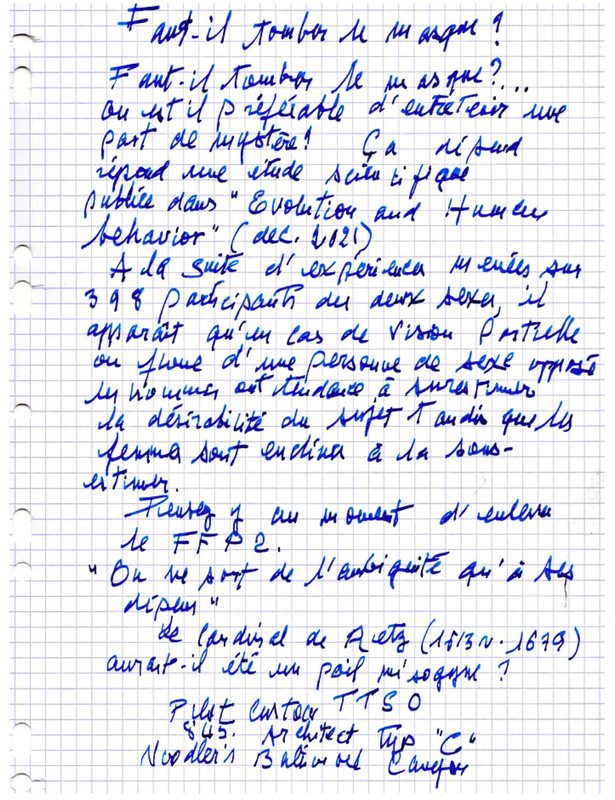 Faut-il tomber le masque ?
Faut-il tomber le masque ?...
ou est il préférable d'entretenir une
part de mystère ? Ça dépend
répond une étude scientifique
publiée dans "Evolution and Human
behavior" (dec. 2021)
A la suite d'expériences menées sur
398 participants des deux sexes, il
apparaît qu'en cas de vision partielle
ou floue d'une personne de sexe opposé
les hommes ont tendance à surestimer
la désirabilité du sujet tandis que les
femmes sont enclines à la sous-
estimer.
Pensez y au moment d'enlever
le FFP2.
"On ne sort de l'ambiguité qu'à ses
dépens"
Le Cardinal de Retz (1613 - 1679)
aurait-il été un poil misogyne ?
Pilot Custom TTSO
845. Architect Typ "C"
Noodler's Baltimore Canyon